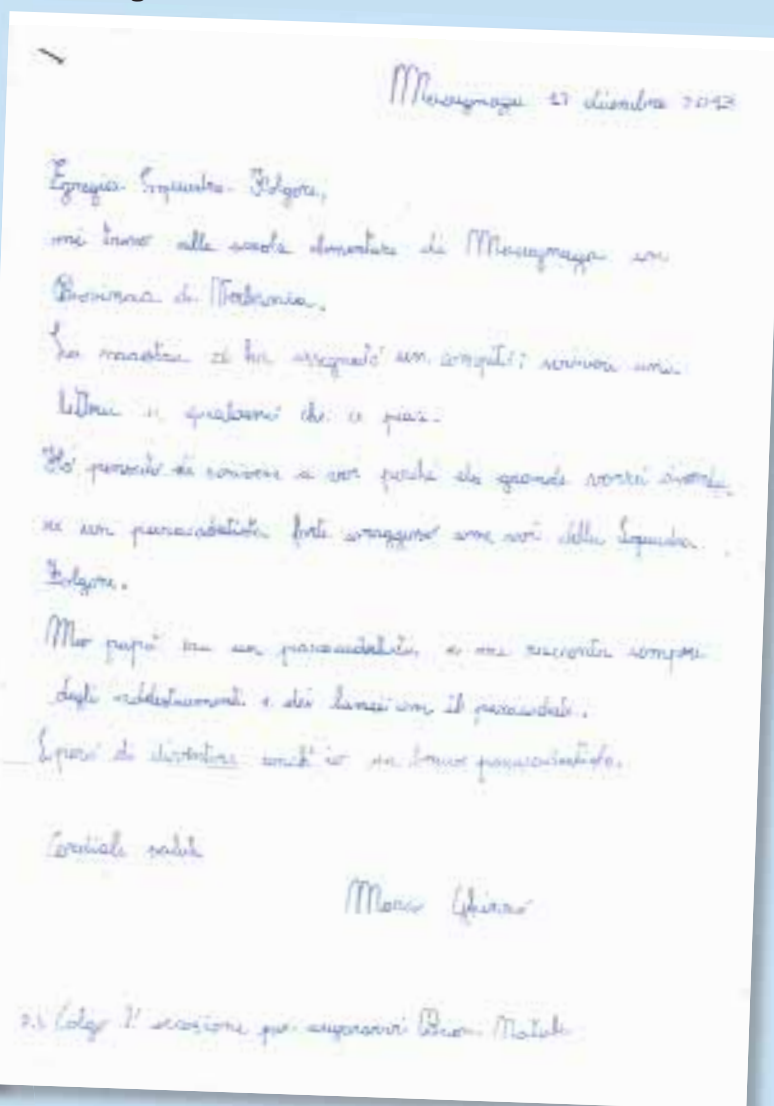 Macugnaga 17 dicembre 2013
Egregia Squadra Folgore,
mi trovo alla scuola elementare di Macugnaga in
Provincia di Verbania.
La maestra ci ha assegnato un compito: scrivere una
lettera a qualcuno che ci piace.
Ho pensato di scrivere a voi perché da grande vorrei diventa
re un paracadutista forte coraggioso come voi della Squadra
Folgore.
Mio papà era un paracadutista e mi racconta sempre
degli addestramenti e dei lanci con il paracadute.
Spero di diventare anch'io un bravo paracadutista.
Cordiali saluti
Marco
P.S Colgo l'occasione per augurarvi Buon Natale